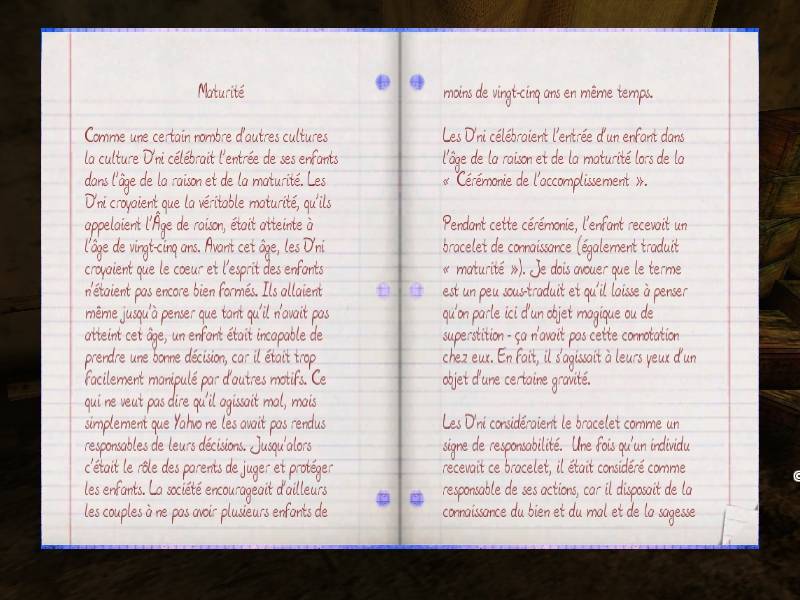 Maturité
Comme une certain nombre d'autres cultures
la culture D'ni célébrait l'entrée de ses enfants
dans l'âge de la raison et de la maturité. Les
D'ni croyaient que la véritable maturité, qu'ils
appelaient l'Âge de raison, était atteinte à
l'âge de vingt-cinq ans. Avant cet âge, les D'ni
croyaient que le coeur et l'esprit des enfants
n'étaient pas encore bien formés. Ils allaient
même jusqu'à penser que tant qu'il n'avait pas
atteint cet âge, un enfant était incapable de
prendre une bonne décision, car il était trop
facilement manipulé par d'autres motifs. Ce
qui ne veut pas dire qu'il agissait mal, mais
simplement que Yahvo ne les avait pas rendus
responsables de leurs décisions. Jusqu'alors
c'était le rôle des parents de juger et protéger
les enfants. La société encourageait d'ailleurs
les couples à ne pas avoir plusieurs enfants de
moins de vingt-cinq ans en même temps.
Les D'ni célébraient l'entrée d'un enfant dans
l'âge de la raison et de la maturité lors de la
« Cérémonie de l'accomplissement ».
Pendant cette cérémonie, l'enfant recevait un
bracelet de connaissance (également traduit
« maturité »). Je dois avouer que le terme
est un peu sous-traduit et qu'il laisse à penser
qu'on parle ici d'un objet magique ou de
superstition - ça n'avait pas cette connotation
chez eux. En fait, il s'agissait à leurs yeux d'un
objet d'une certaine gravité.
Les D'ni considéraient le bracelet comme un
signe de responsabilité. Une fois qu'un individu
recevait ce bracelet, il était considéré comme
responsable de ses actions, car il disposait de la
connaissance du bien et du mal et de la sagesse